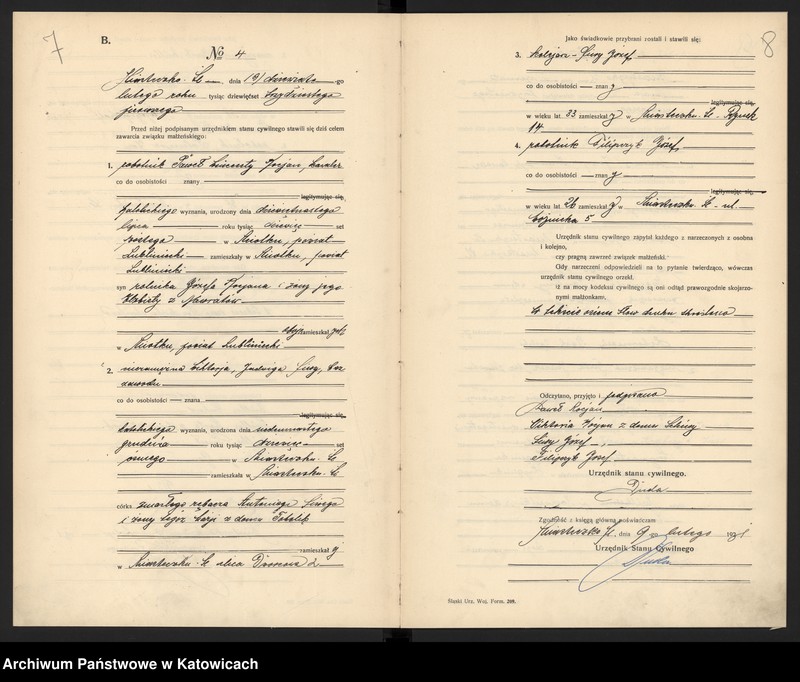 7
B.
№ 4
Miasteczko Śl. dnia (9) dziewiątego
lutego roku tysiąc dziewięćset trzydziestego
pierwszego
Przed niżej podpisanym urzędnikiem stanu cywilnego stawili się dziś celem
zawarcia związku małżeńskiego:
1. robotnik Paweł Wincenty Kozjan, kawaler
co do osobistości znany
legitymując się
katolickiego wyznania, urodzony dnia dziewiętnastego
lipca roku tysiąc dziewięć set
szóstego w Miotku, powiat
Lubliniecki zamieszkały w Miotku, powiat
Lubliniecki
syn rolnika Józefa i żony jego
Elżbiety z Nawratów
zamieszkał
w Miotku, powiat Lubliniecki
2. niezamężna Wiktorja, Jadwiga bez
zawodu
co do osobistości — znana
legitymując się
katolickiego wyznania, urodzona dnia siedemnastego
grudnia roku tysiąc dziewięć set
ósmego w Miasteczku Śl.
zamieszkała w Miasteczku Śl.
córka zmarłego Antoniego
i żony jego z domu
zamieszkał
w Miasteczku Śl. ulica Dworcowa 2
8
Jako świadkowie przybrani zostali i stawili się:
3. kolejarz Józef
co do osobistości — znany
legitymując się
w wieku lat 33 zamieszkały w Miasteczku Śl. Rynek
14
4. robotnik Filipczyk Józef
co do osobistości — znany
legitymując się
w wieku lat 26 zamieszkały w Miasteczku Śl. ul.
5
Urzędnik stanu cywilnego zapytał każdego z narzeczonych z osobna
i kolejno,
czy pragną zawrzeć związek małżeński.
Gdy narzeczeni odpowiedzieli na to pytanie twierdząco, wówczas
urzędnik stanu cywilnego orzekł,
iż na mocy kodeksu cywilnego są uni odtąd prawozgodnie skojarzo-
nymi małżonkami.
W tekście osiem słów druku skreślono
Odczytano, przyjęto i podpisano
Paweł
Wiktoria z domu
Józef
Filipczyk Józef
Urzędnik stanu cywilnego.
Duda
Zgodność z księgą główną poświadczam
Miasteczko Śl., dnia 9go lutego 1931
Urzędnik Stanu Cywilnego
Duda
Śląski Urz. Woj. Form. 209.
Archiwum Państwowe w Katowicach